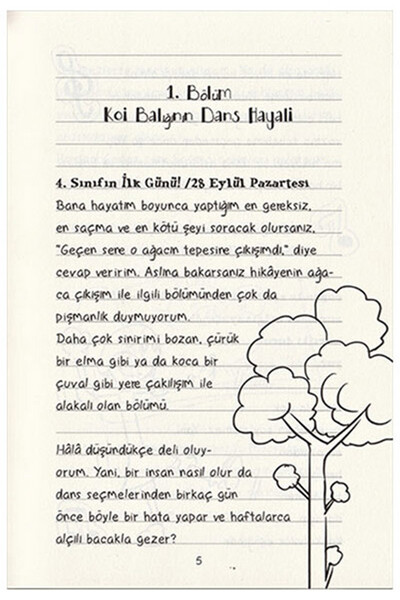 1. Bölüm
Koi Balığının Dans Hayali
4. Sınıfın İlk Günü! /28 Eylül Pazartesi
Bana hayatım boyunca yaptığım en gereksiz,
en saçma ve en kötü şeyi soracak olursanız,
"Geçen sene o ağacın tepesine çıkışımdı," diye
cevap veririm. Aslına bakarsanız hikâyenin ağa-
ca çıkışım ile ilgili bölümünden çok da
pişmanlık duymuyorum.
Daha çok sinirimi bozan, çürük
bir elma gibi ya da koca bir
çuval gibi yere çakılışım ile
alakalı olan bölümü.
Hâlâ düşündükçe deli oluy-
orum. Yani, bir insan nasıl olur da
dans seçmelerinden birkaç gün
önce böyle bir hata yapar ve haftalarca
alçılı bacakla gezer?
5